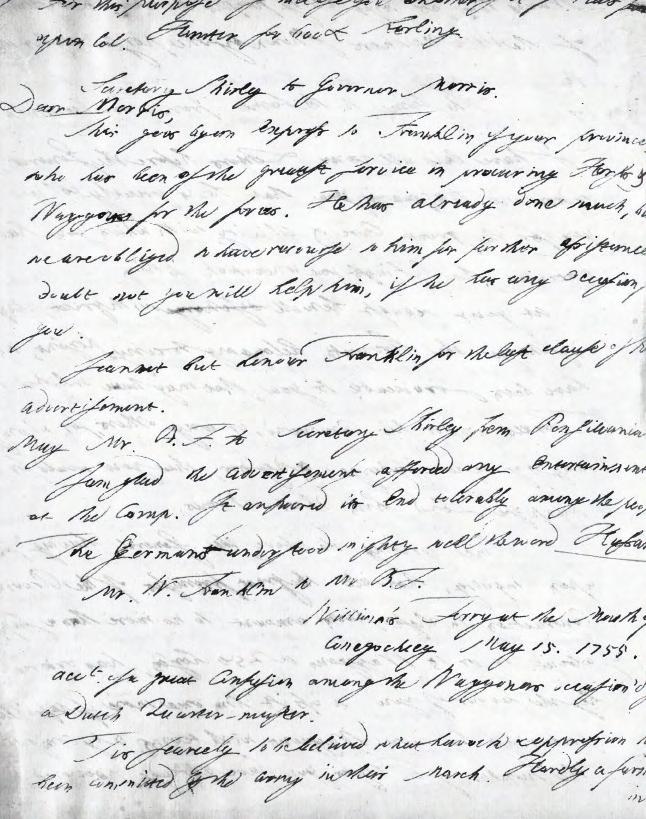 for this purpose of
upon Col. Hunter for 600£ Sterling
Secretary Shirley to Governor Morris.
Dear Morris,
This goes by an Express to Franklin of your province
who has been of the greatest Service in procuring Horses &
Waggons for the forces. He has already done much, b
we are obliged to have recourse to him for further assistance
Doubt not you will help him, if he has any Occasion
you.
I cannot but honour Franklin for the last clause of h
advertisement.
May Mr. B. F. to Secretary Shirley from Pensilvania
I am glad the advertisement afforded any Entertainment
at the Camp. It answered its End tolerably among the peo
The Germans understood mighty well the word Hussar
Mr. W. Franklin to Mr B.F.
William's Ferry at the Mouth of
Conegochieg May 15. 1755.
acct. of a great Confusion among the Waggoners occasion'd
a Dutch Quarter-master.
Tis scarcely to be believed what havock & oppression h
been committed by the army in their March. Hardly a farm
in